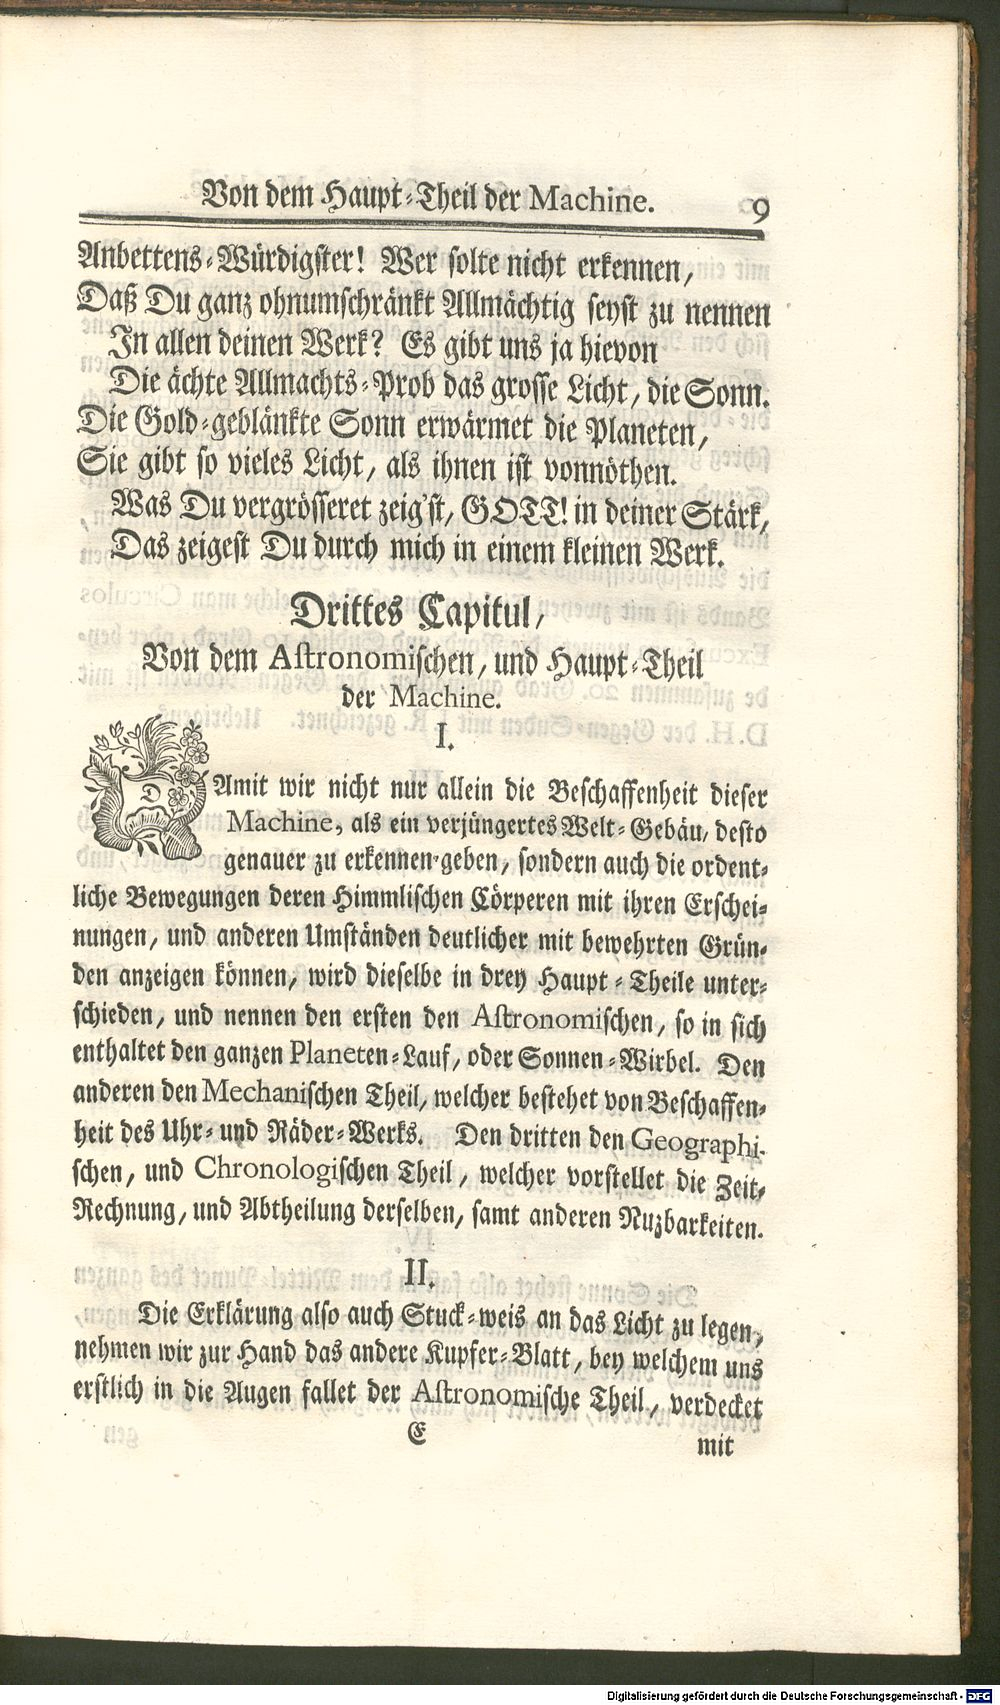 Von dem Haupt-Theil der Machine. 9
Anbettens-Würdigster! Wer solte nicht erkennen,
Daß Du ganz ohnumschränkt Allmächtig seyst zu nennen
In allen deinen Werk? Es gibt uns ja hievon
Die ächte Allmachts-Prob das grosse Licht, die Sonn.
Die Gold-geblänkte Sonn erwärmet die Planeten,
Sie gibt so vieles Licht, als ihnen ist vonnöthen.
Was Du vergrösseret zeig'st, GOTT! in deiner Stärk,
Das zeigest Du durch mich in einem kleinen Werk.
Drittes Capitul,
Von dem Astronomischen, und Haupt-Theil
der Machine.
I.
DAmit wir nicht nur allein die Beschaffenheit dieser
Machine, als ein verjüngertes Welt-Gebäu, desto
genauer zu erkennen geben, sondern auch die ordent-
liche Bewegungen deren Himmlischen Cörperen mit ihren Erschei-
nungen, und anderen Umständen deutlicher mit bewehrten Grün-
den anzeigen können, wird dieselbe in drey Haupt-Theile unter-
schieden, und nennen den ersten den Astronomischen, so in sich
enthaltet den ganzen Planeten-Lauf, oder Sonnen-Wirbel. Den
anderen den Mechanischen Theil, welcher bestehet von Beschaffen-
heit des Uhr- und Räder-Werks. Den dritten den Geographi-
schen, und Chronologischen Theil, welcher vorstellet die Zeit-
Rechnung, und Abtheilung derselben, samt anderen Nuzbarkeiten.
II.
Die Erklärung also auch Stuck-weis an das Licht zu legen,
nehmen wir zur Hand das andere Kupfer-Blatt, bey welchem uns
erstlich in die Augen fallet der Astronomische Theil, verdecket
E mit
Digitalisierung gefördert durch die Deutsche Forschungsgemeinschaft - DFG